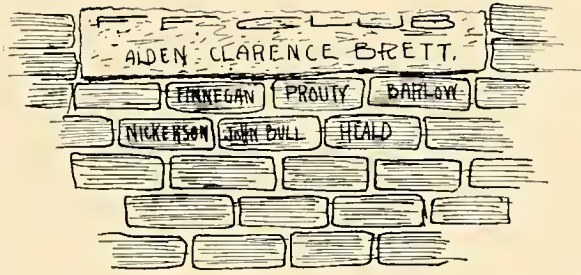 CLUB
ALDEN CLARENCE BRETT.
FINNEGAN PROUTY BARLOW
NICKERSON JOHN BULL HEALD